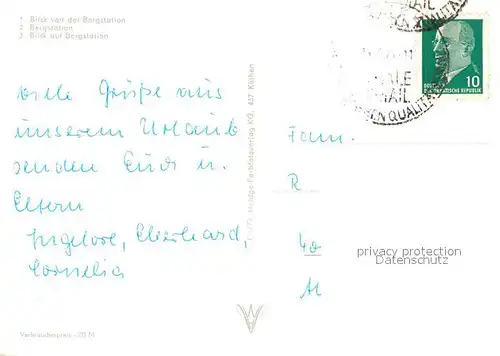 1. Blick von der Bergstation
2. Bergstation
3. Blick auf Bergstation
viele Grüße aus
unserem Urlaub
senden Euch u.
Eltern
Ingelore, Eberhard,
Cornelia
Verkaufspreis -,20 M
KG, 437 Köthen
QUALITÄT
QUALITÄT
10
DEUTSCHE
DEMOKRATISCHE REPUBLIK
Fam.
R
40
privacy protection
Datenschutz